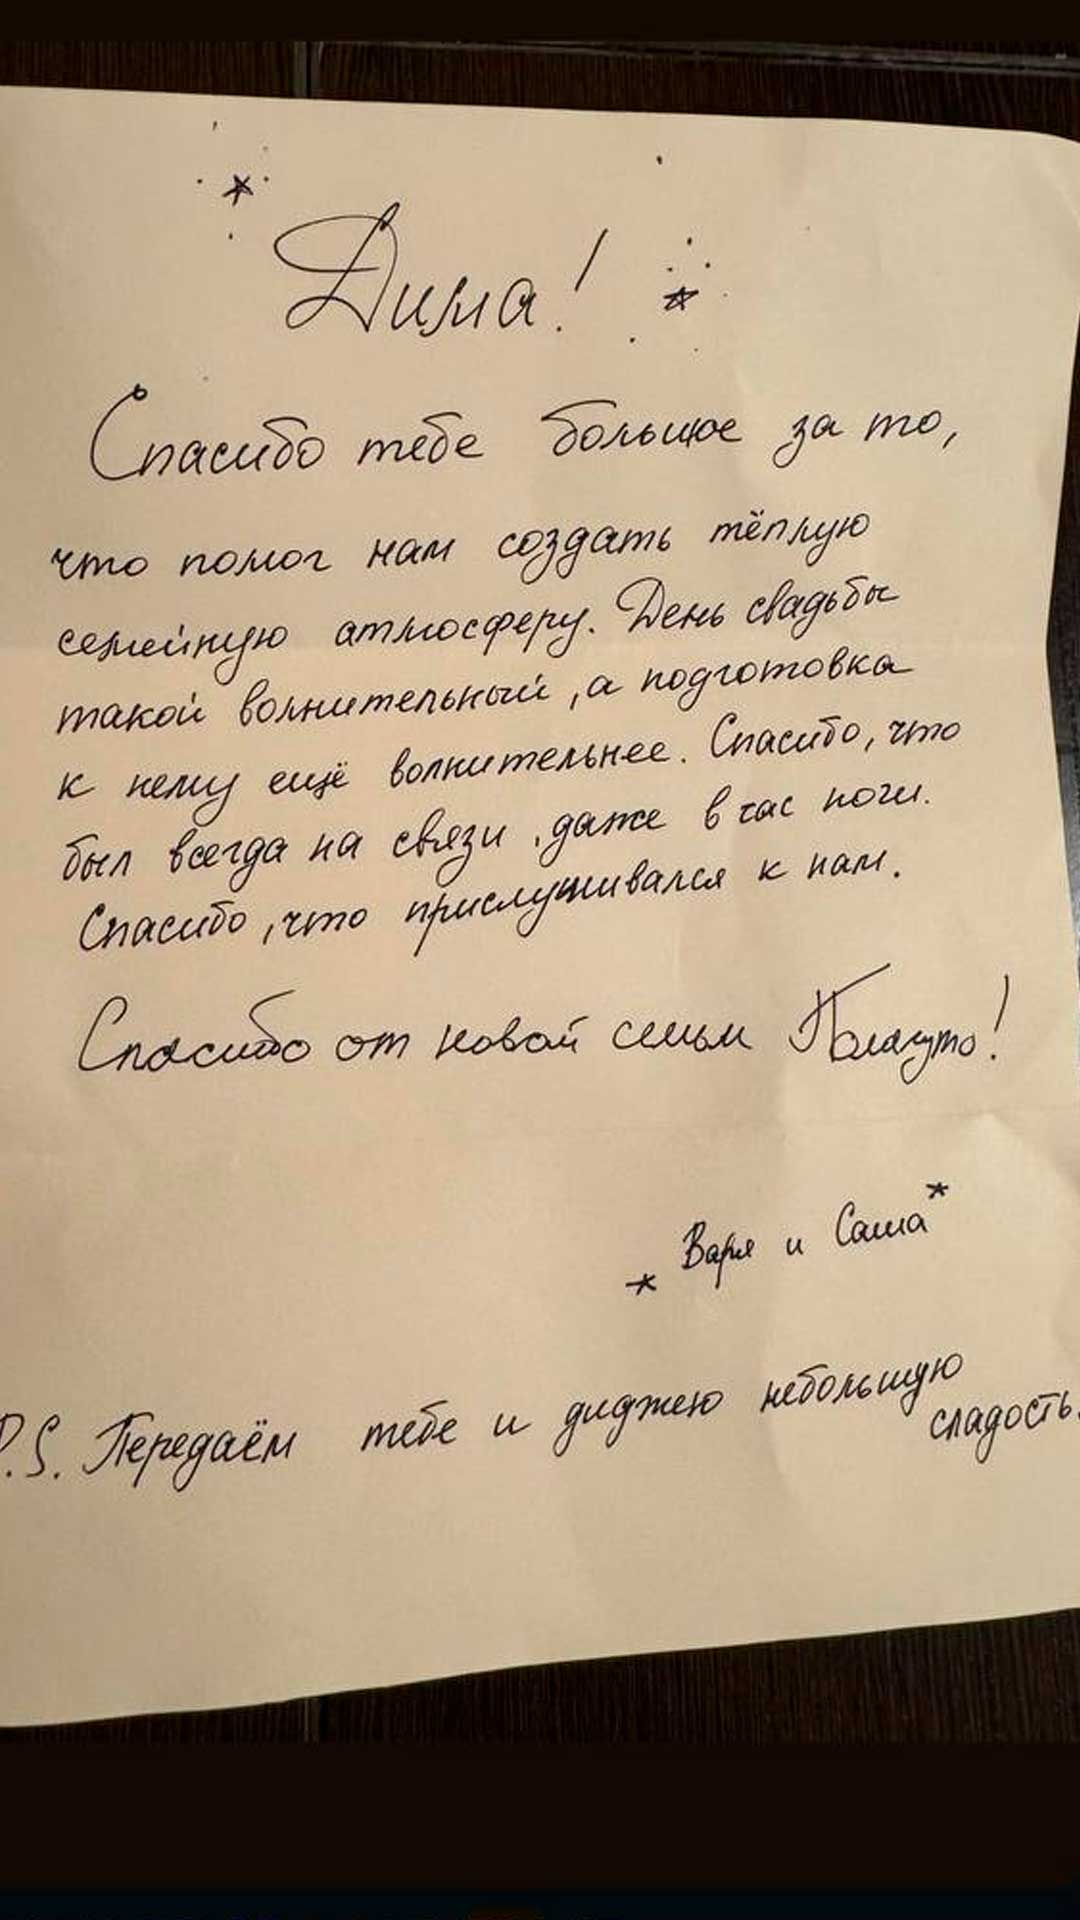 Дима!
Спасибо тебе большое за то,
что помог нам создать тёплую
семейную атмосферу. День свадьбы
такой волнительный, а подготовка
к нему ещё волнительнее. Спасибо, что
был всегда на связи, даже в час ночи.
Спасибо, что прислушивался к нам.
Спасибо от новой семьи
Варя и Саша
P.S. Передаём тебе и диджею небольшую
сладость.